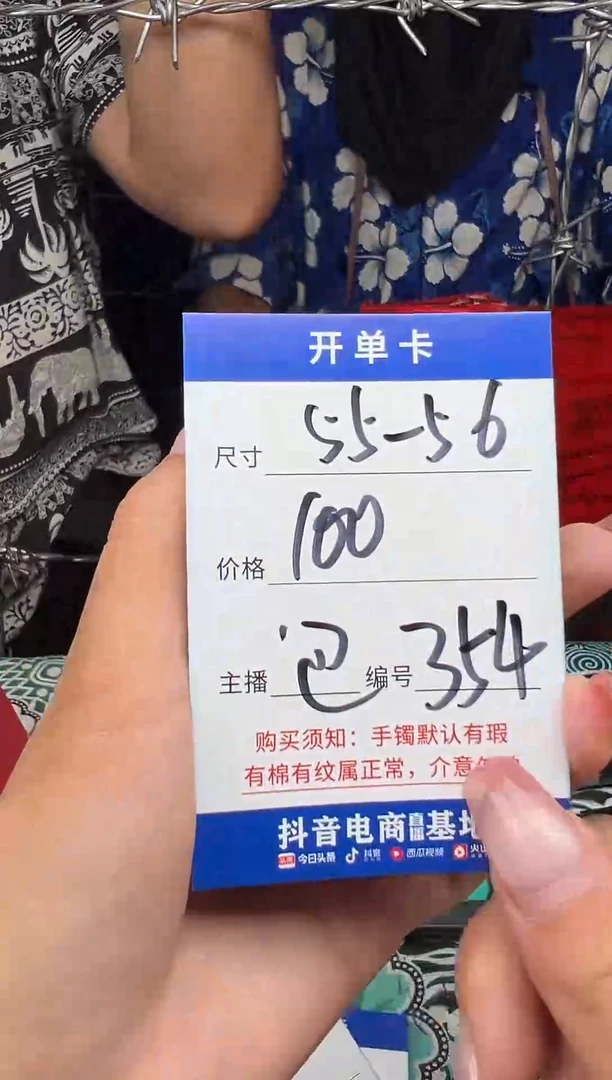 开单卡
尺寸 55-56
价格 100
主播 编号 354
购买须知：手镯默认有瑕
有棉有纹属正常，介意
抖音电商直播基地
头条 今日头条 抖音 西瓜视频 火山